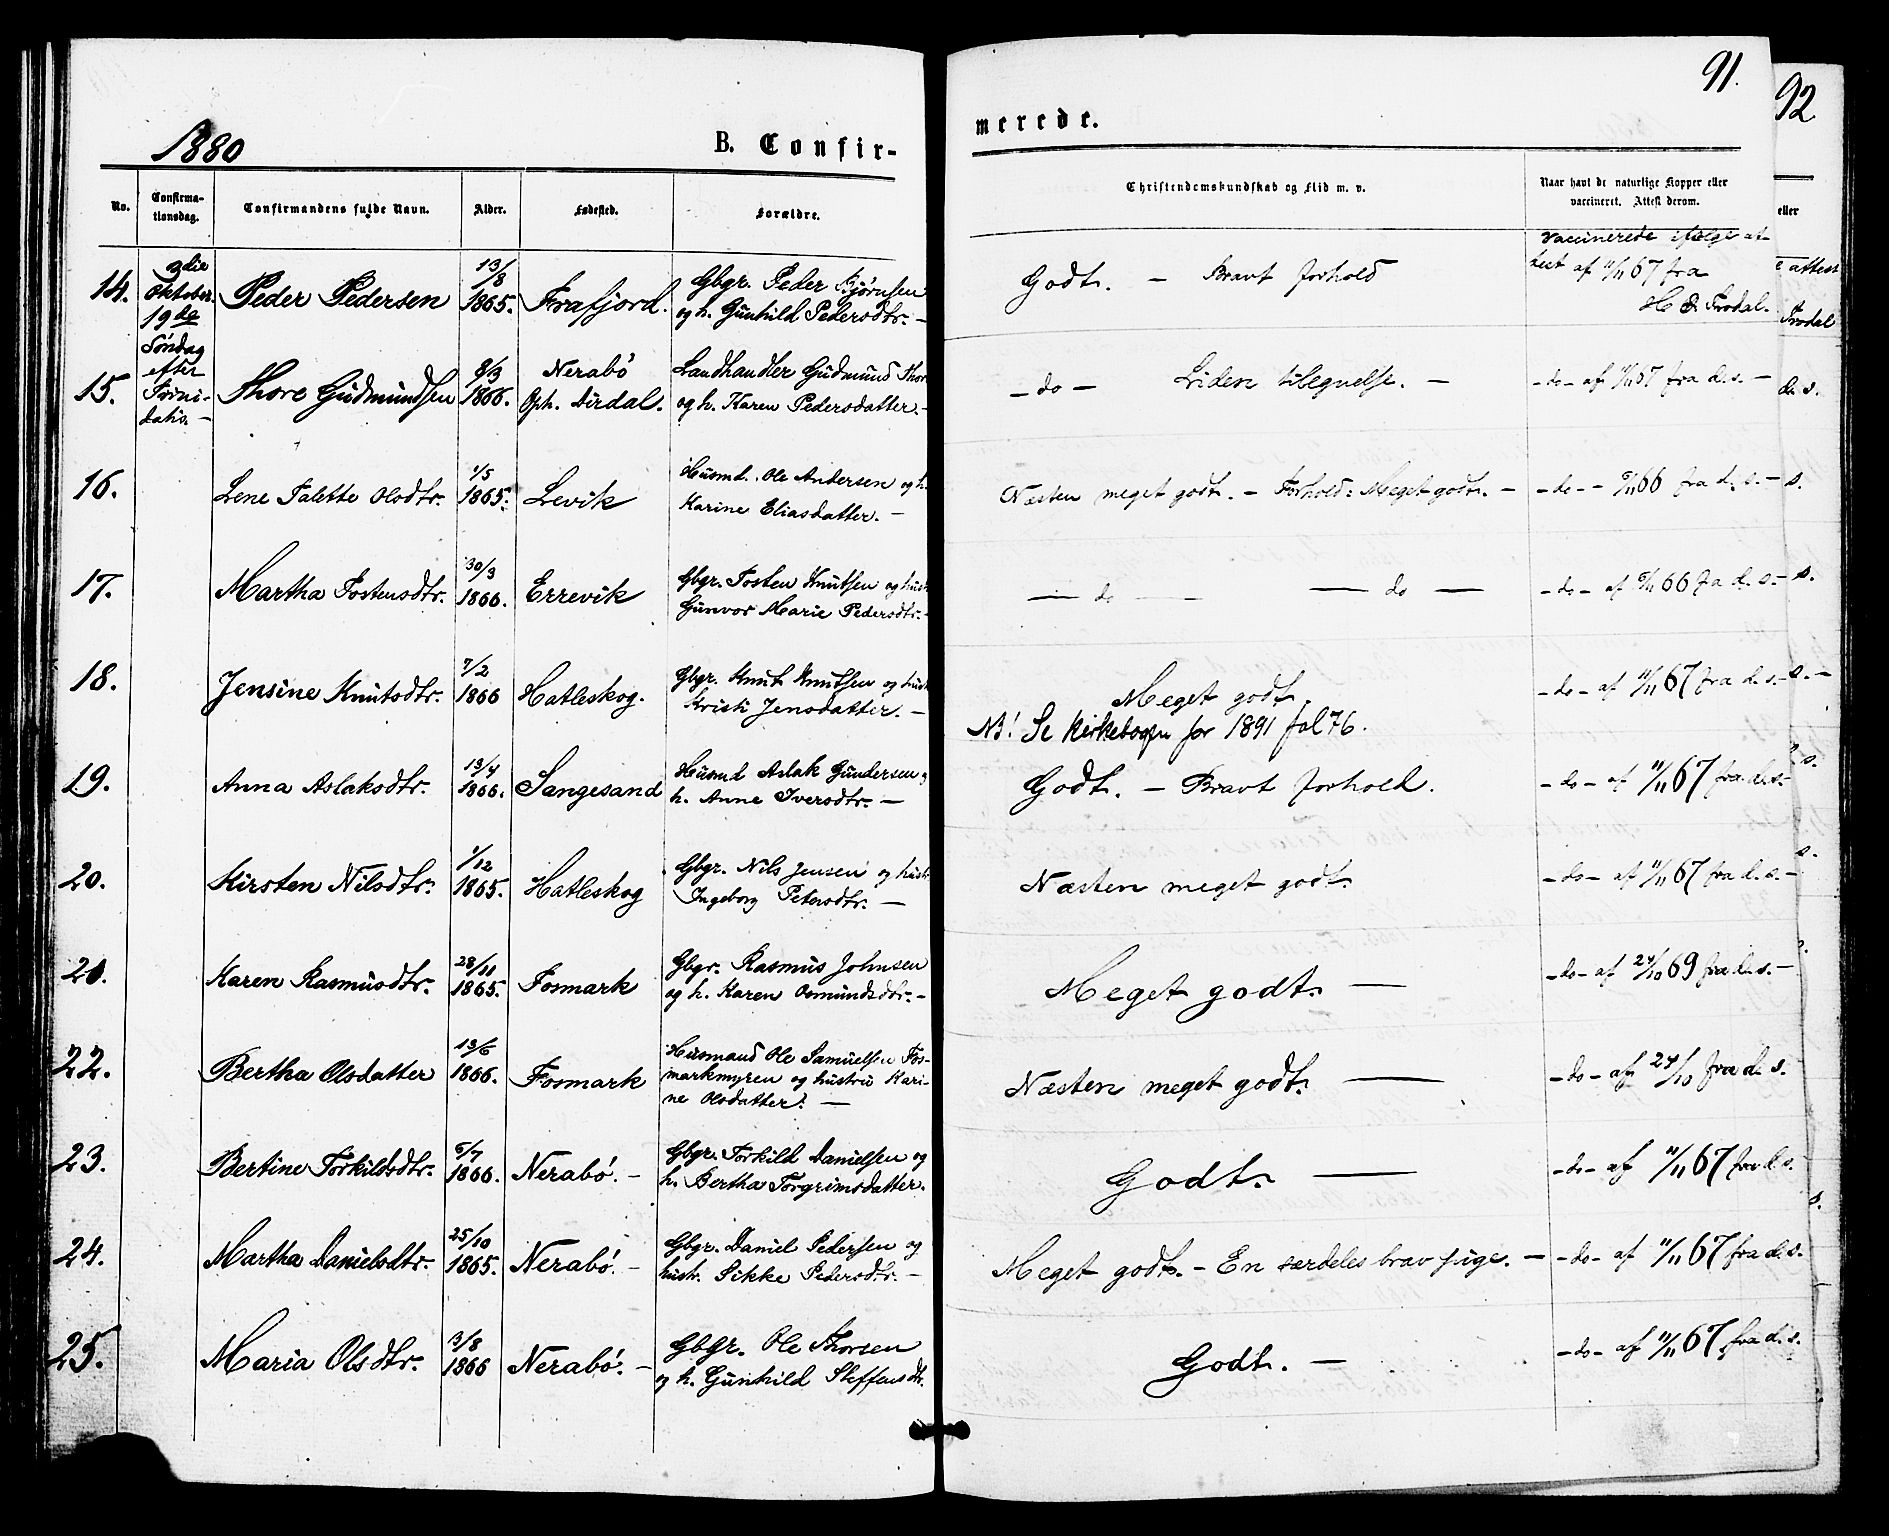 91.
92
1880
B. Confir-
merede.
No.
Confirma-
tionsdag.
Confirmandens fulde Navn.
Alder.
Fødested.
Forældre.
Christendomskundskab og Flid m. v.
Naar havt de naturlige Kopper eller
vaccineret. Attest derom.
eller
3die
Oktober.
19de
Søndag
efter
Trini-
datis. -
14.
Peder Pedersen
13/8
1865.
Frafjord.
Gbgr. Peder Bjørnsen
og h. Gunhild Pedersdtr. -
Godt. - Bravt Forhold
Vaccinerede ifølge at-
test af 11/11 67 fra
H Frodal.
attest
Frodal
15.
Thore Gudmundsen
8/3
1866.
Nerabö
Oph. Dirdal.
Landhandler Gudmund Thor
og h. Karen Pedersdatter. -
- do - Liden tilegnelse. -
- do - af 11/11 67 fra d. s. -
d. s.
16.
Lene Talette Olsdtr.
1/5
1865.
Levik
Husmd. Ole Andersen og h.
Karine Eliasdatter. -
Næsten meget godt. - Forhold: Meget godt. -
- do - - 9/11 66 fra d. s. -
s.
17.
Martha Tostensdtr.
30/3
1866.
Errevik
Gbgr. Tosten Knutsen og hust
Gunvor Marie Pedersdtr. -
— do — — do —
- do - af 9/11 66 fa d. s. -
s.
18.
Jensine Knutsdtr.
7/2
1866
Hatleskog.
Gbgr. Knut Knutsen og hust
Kristi Jensdatter. -
Meget godt.
NB! Se Kirkebogen for 1891 fol 76.
- do - af 11/11 67 fra d. s. -
s. -
19.
Anna Aslaksdtr.
13/4
1866.
Sangesand
Husmd Aslak Gundersen og
h. Anne Iversdtr. -
Godt. - Bravt Forhold.
- do - af 11/11 67 fra d. s. -
s.
20.
Kirsten Nilsdtr.
1/12
1865.
Hatleskog
Gbgr. Nils Jensen og hustr
Ingeborg Petersdtr. -
Næsten meget godt.
- do - af 11/11 67 fra d. s. -
s.
21.
Karen Rasmusdtr.
28/11
1865.
Fosmark
Gbgr. Rasmus Johnsen
og h. Karen Osmundsdtr. -
Meget godt. —
- do - af 24/10 69 fra d. s. -
22.
Bertha Olsdatter
13/6
1866.
Fosmark
Husmand Ole Samuelsen Fos-
markmyren og hustru Kari-
ne Olsdatter. -
Næsten meget godt. —
- do - af 24/10 fra d. s.
23.
Bertine Torkildsdtr.
5/7
1866.
Nerabö. -
Gbgr. Torkild Danielsen og
h. Bertha Torgrimsdatter.
Godt. —
- do - af 11/11 67 fra d. s.
s.
24.
Martha Danielsdtr.
25/10
1865.
Nerabö. -
Gbgr. Daniel Pedersen og
hustr. Sikke Pedersdtr. -
Meget godt. - En særdeles brav pige. -
- do - af 11/11 67 fra d. s.
25.
Maria Olsdtr.
3/8
1866
Nerabö. -
Gbgr. Ole Thorsen
og h. Gunhild Steffensdtr.
Godt. -
- do - af 11/11 67 fra d. s.